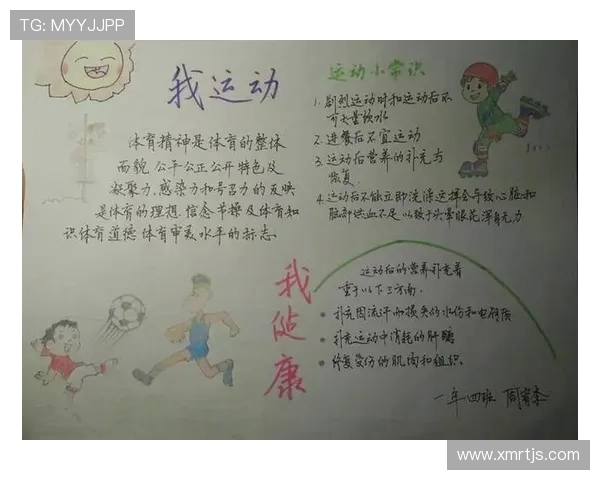 TG: MYYJJPP
我运动
体育精神是体育的整体
面貌.公平公正公开特色及
凝聚力.感染力和号召力的反映
是体育的理想.信念 节操及体育知
识体育道德 体育审美水平的标志.
运动小常识
1. 剧烈运动时和运动后不
可大量饮水
2. 进餐后不宜运动
3. 运动后营养的补充与
恢复.
4. 运动后不能立即洗澡这样会导致心脏和
脑部供血不足以致于头晕眼花浑身无力
我健康
运动后的营养补充着
重于以下三方面.
补充因流汗而损失的水份和电解质
补充运动中消耗的肝醣
修复受伤的肌肉和组织.
一年四班
www.xmrtjs.com